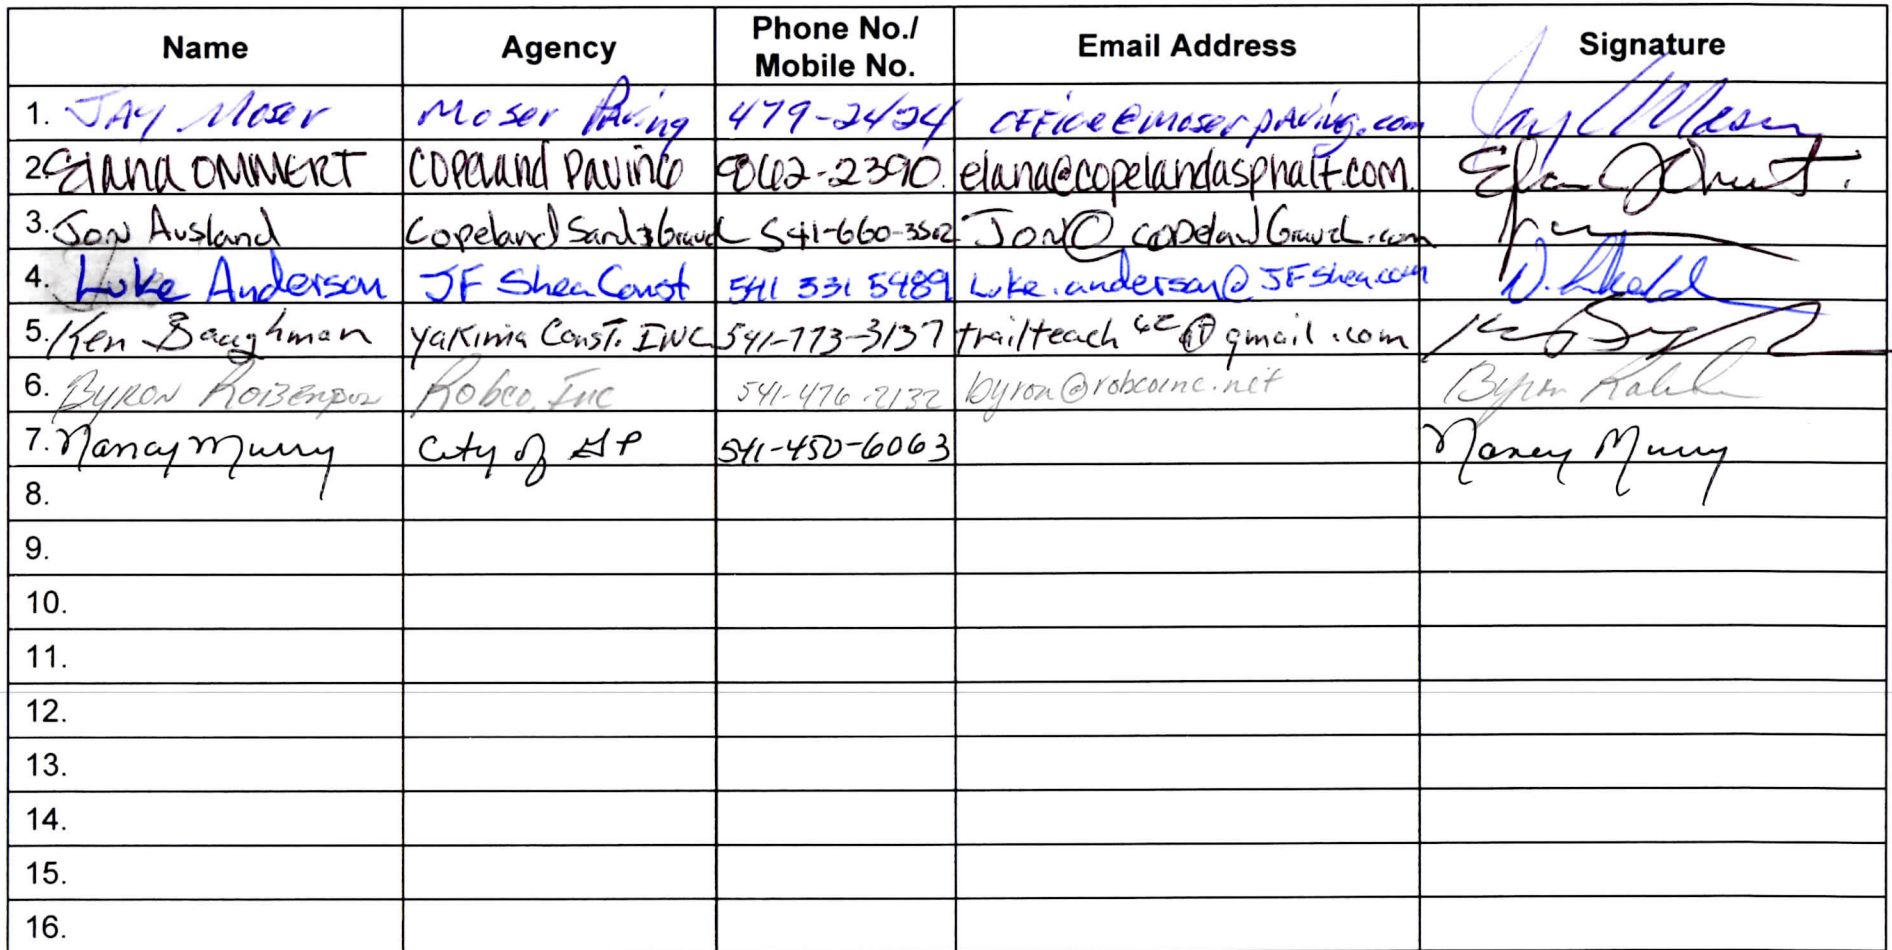 Name Agency Phone No./ Mobile No. Email Address Signature
1. JAY Moser Moser PAving 479-2424 OFFice@moserpAving.com Jay Moser
2. Elana OMMERT COPELAND PAVING 862-2390 elana@copelandasphalt.com.
3. Jon Ausland Copeland Sand & Gravel 541-660-3502
4. Luke Anderson JF Shea Const 541 331 5489 Luke.anderson@JFShea.com
5. Ken Baughman Yakima Const. INC 541-773-3137 trailteach @gmail.com
6. BYRON Robco, Inc 541-476-2132 byron@robcoinc.net Byron
7. Nancy Murry City of GP 541-450-6063 Nancy Murry
8.
9.
10.
11.
12.
13.
14.
15.
16.